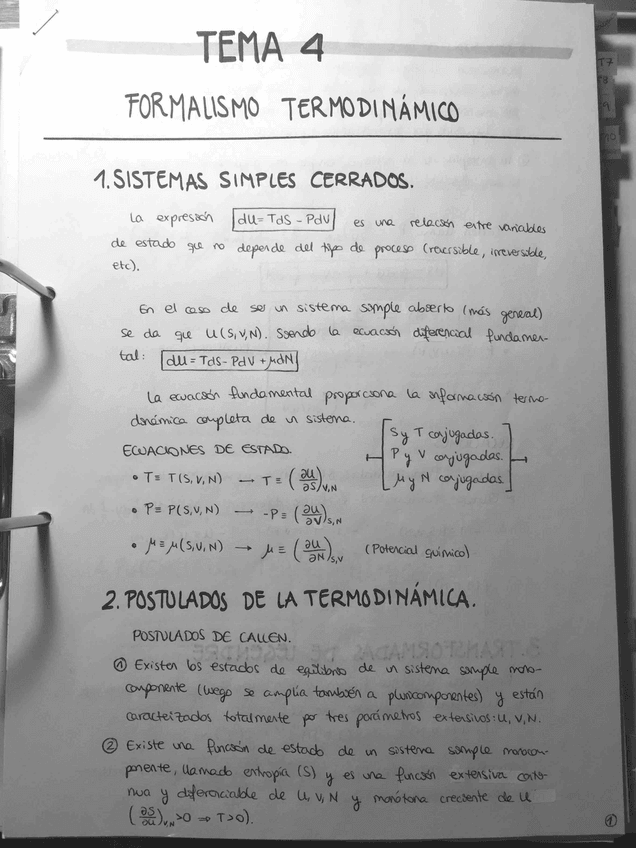 TEMA 4
FORMALISMO TERMODINÁMICO
1. SISTEMAS SIMPLES CERRADOS.
La expresión dU = TdS - PdV es una relación entre variables
de estado que no depende del tipo de proceso (reversible, irreversible,
etc).
En el caso de ser un sistema simple abierto (más general)
se da que U(S,V,N). Siendo la ecuación diferencial fundamen-
tal: dU = TdS - PdV + μdN
La ecuación fundamental proporciona la información termo-
dinámica completa de un sistema.
S y T conjugadas.
P y V conjugadas.
μ y N conjugadas.
ECUACIONES DE ESTADO.
• T ≡ T(S,V,N) → T ≡ (∂U/∂S)V,N
• P ≡ P(S,V,N) → -P ≡ (∂U/∂V)S,N
• μ ≡ μ(S,V,N) → μ ≡ (∂U/∂N)S,V (Potencial químico)
2. POSTULADOS DE LA TERMODINÁMICA.
POSTULADOS DE CALLEN.
① Existen los estados de equilibrio de un sistema simple mono-
componente (luego se amplía también a pluricomponentes) y están
caracterizados totalmente por tres parámetros extensivos: U, V, N.
② Existe una función de estado de un sistema simple monocom-
ponente, llamado entropía (S) y es una función extensiva conti-
nua y diferenciable de U, V, N y monótona creciente de U
(∂S/∂U)V,N >0 ⇒ T>0).
①